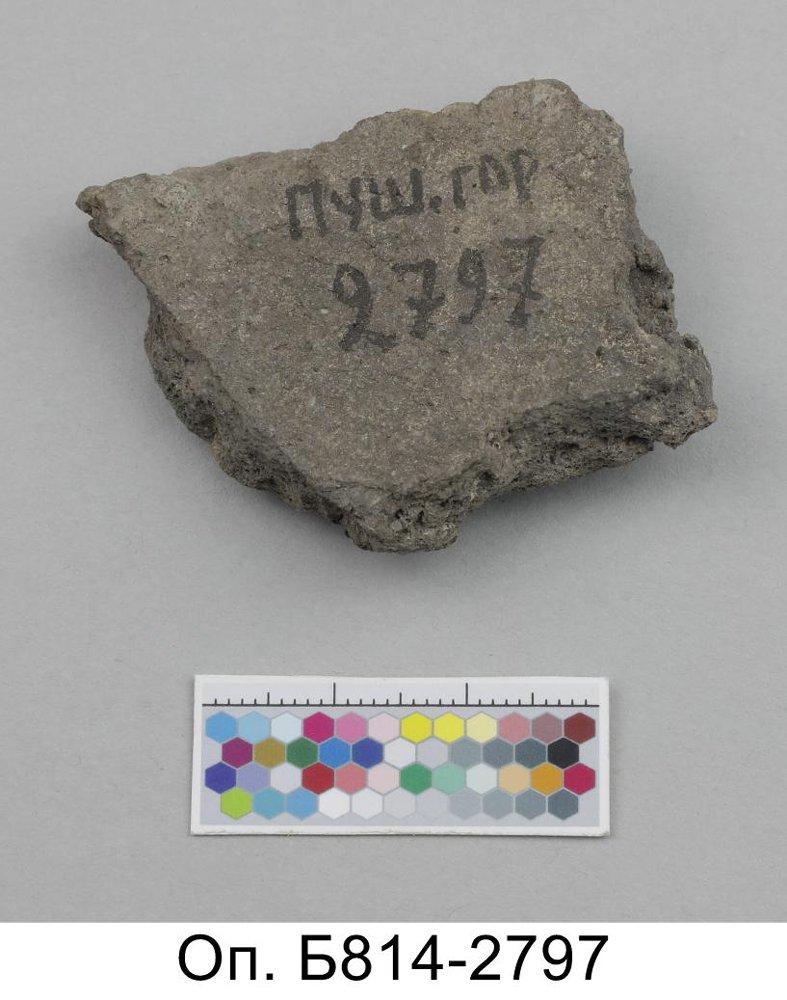 ПУШ.ГОР
2797
Оп. Б814-2797